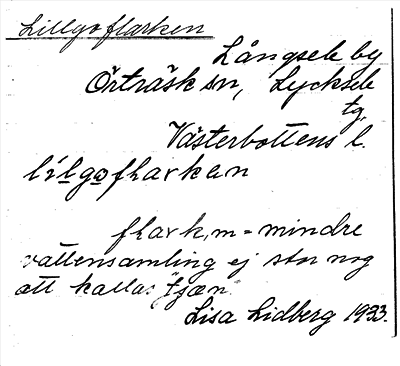 Lillgoflarken
Långsele by
Örträsk sn, Lycksele
tg.
Västerbottens l.
lílgoflarkan
flark, m = mindre
vattensamling ej stor nog
att kallas "tjæn".
Lisa Lidberg 1933.